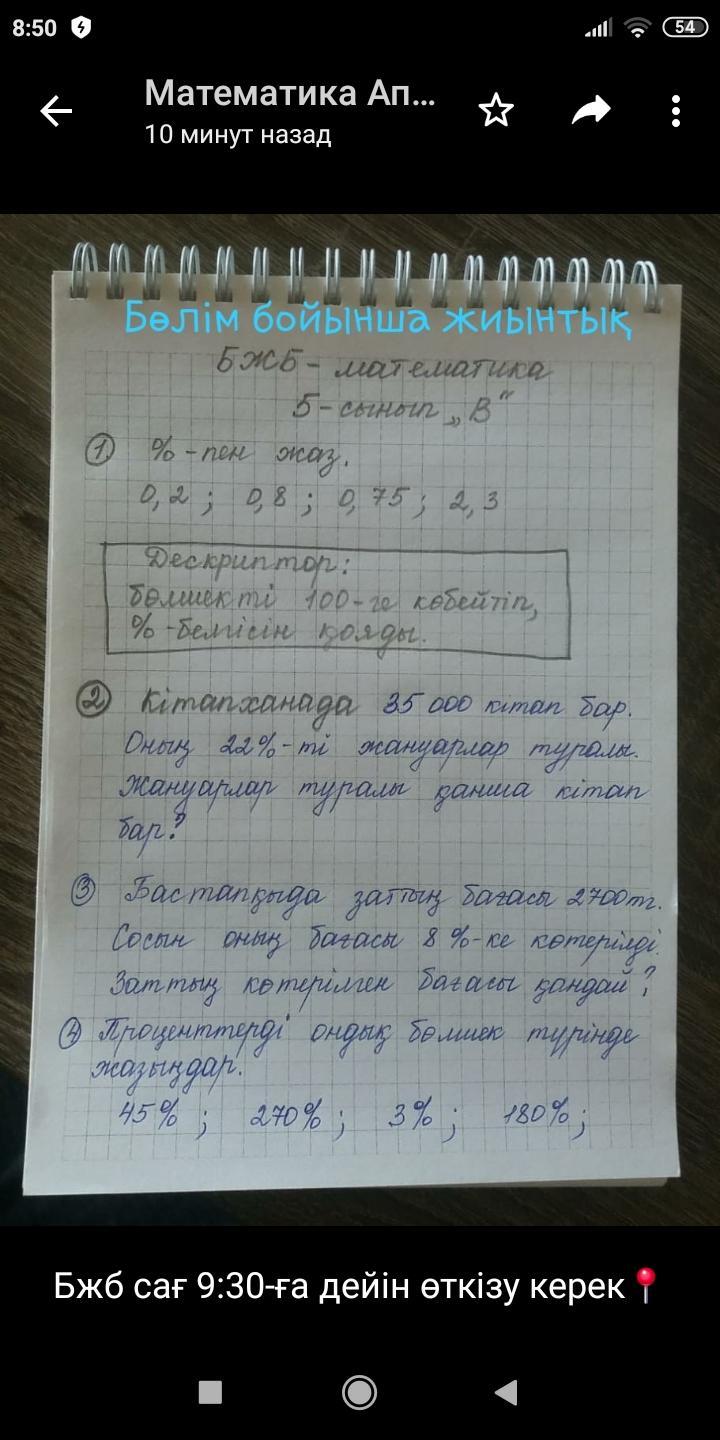 8:50
54
Математика Ап...
10 минут назад
Бөлім бойынша жиынтық
БЖБ - математика
5-сынып „В"
1. %-пен жаз.
0,2 ; 0,8 ; 0,75 ; 2,3
Дескриптор:
бөлшекті 100-ге көбейтіп,
%-белгісін қояды.
2 Кітапханада 35 000 кітап бар.
Оның 22%-ті жануарлар туралы.
Жануарлар туралы қанша кітап
бар?
3 Бастапқыда заттың бағасы 2700тг.
Сосын оның бағасы 8%-ке көтерілді.
Заттың көтерілген бағасы қандай?
4 Проценттерді ондық бөлшек түрінде
жазыңдар.
45% ; 270% ; 3% ; 180% ;
Бжб сағ 9:30-ға дейін өткізу керек📍